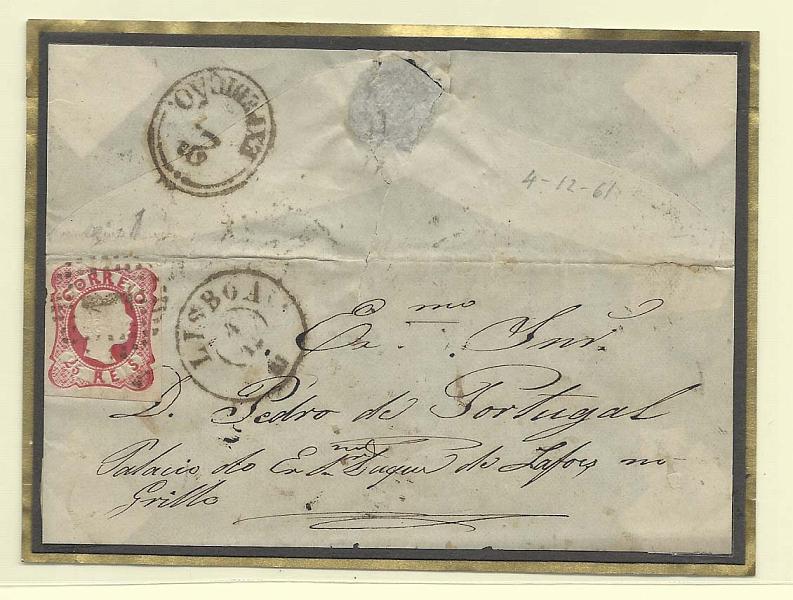 EXPEDIÇÃO.
4-12-61
1
CORREIO
25 REIS
LISBOA
4
12
Ex.mo Snr.
D. Pedro de Portugal
Palacio do Ex.mo Duque de Lafoes no
Grillo